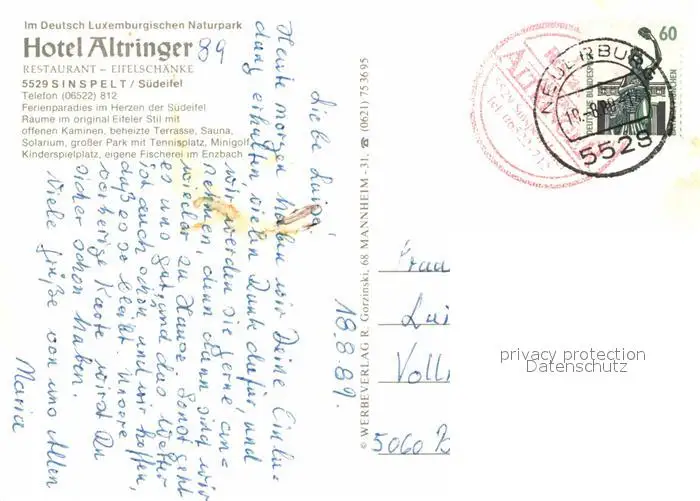 Im Deutsch Luxemburgischen Naturpark
Hotel Altringer
89
RESTAURANT – EIFELSCHÄNKE
5529 SINSPELT / Südeifel
Telefon (06522) 812
Ferienparadies im Herzen der Südeifel
Räume im original Eifeler Stil mit
offenen Kaminen, beheizte Terrasse, Sauna,
Solarium, großer Park mit Tennisplatz, Minigolf,
Kinderspielplatz, eigene Fischerei im Enzbach
18.8.89.
Liebe Luise,
Heute morgen haben wir Deine Einla=
dung erhalten vielen Dank dafür, und
wir werden sie gerne an=
nehmen, denn dann sind wir
wieder zu Hause. Sonst geht
es uns gut, und das Wetter
ist auch schön und wir hoffen,
daß es so bleibt. Unsere
vorherige Karte wirst Du
sicher schon haben.
Viele Grüße von uns Allen
Maria
© WERBEVERLAG R. Gorzinski, 68 MANNHEIM - 31, ☎ (0621) 75 36 95
60
DEUTSCHE BUNDESPOST
MÜNCHEN
NEUERBURG
5528
Frau
Lui
Voll
5060
privacy protection
Datenschutz